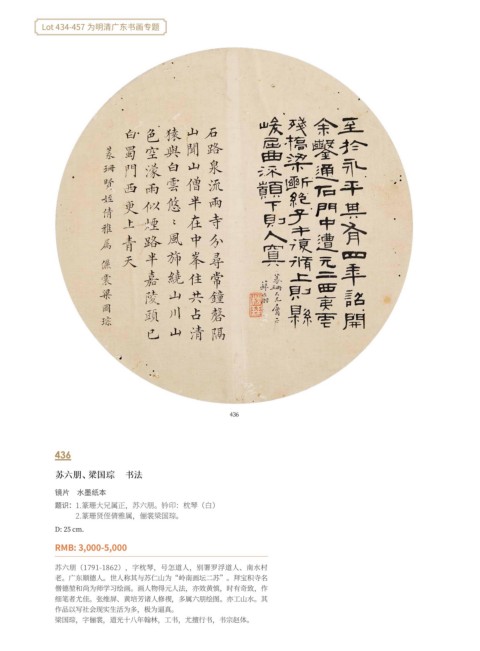 Lot 434-457 为明清广东书画专题
至於永平其有四年詔開
余鑿通石門中遭元二西夷虐
殘橋梁斷絕子午復循上則縣
峻屈曲流顛下則入冥
珊大兄屬正
蘇六朋
石路泉流兩寺分尋常鐘磬隔
山聞山僧半在中峯住共占清
猿與白雲悠悠風旆繞山川山
色空濛雨似煙路半嘉陵頭已
白蜀門西更上青天
珊賢姪倩雅屬 儷裳梁國琮
436
436
苏六朋、梁国琮 书法
镜片 水墨纸本
题识：1.珊大兄属正，苏六朋。钤印：枕琴（白）
2.珊贤侄倩雅属，俪裳梁国琮。
D: 25 cm.
RMB: 3,000-5,000
苏六朋（1791-1862），字枕琴，号怎道人，别署罗浮道人、南水村
老。广东顺德人。世人称其与苏仁山为“岭南画坛二苏”。拜宝积寺名
僧德堃和尚为师学习绘画。画人物得元人法，亦效黄慎，时有奇致，作
细笔者尤佳。张维屏、黄培芳诸人修禊，多属六朋绘图。亦工山水。其
作品以写社会现实生活为多，极为逼真。
梁国琮，字俪裳，道光十八年翰林，工书，尤擅行书，书宗赵体。